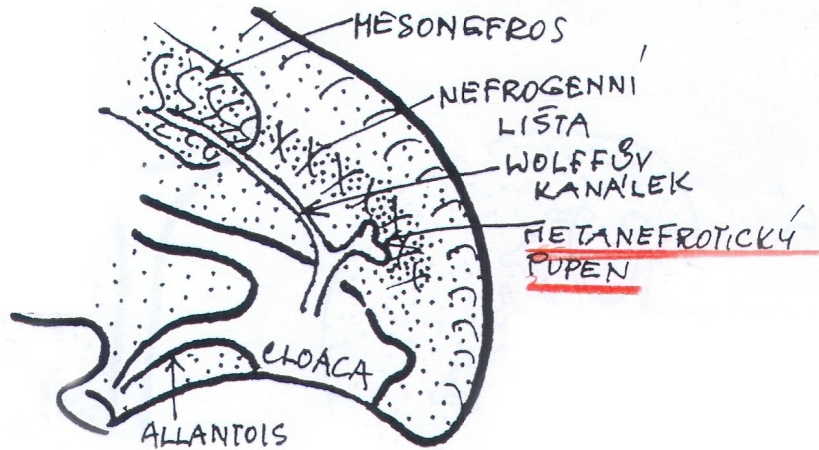 MESONEFROS
NEFROGENNÍ
LIŠTA
WOLFFŮV
KANÁLEK
METANEFROTICKÝ
PUPEN
CLOACA
ALLANTOIS